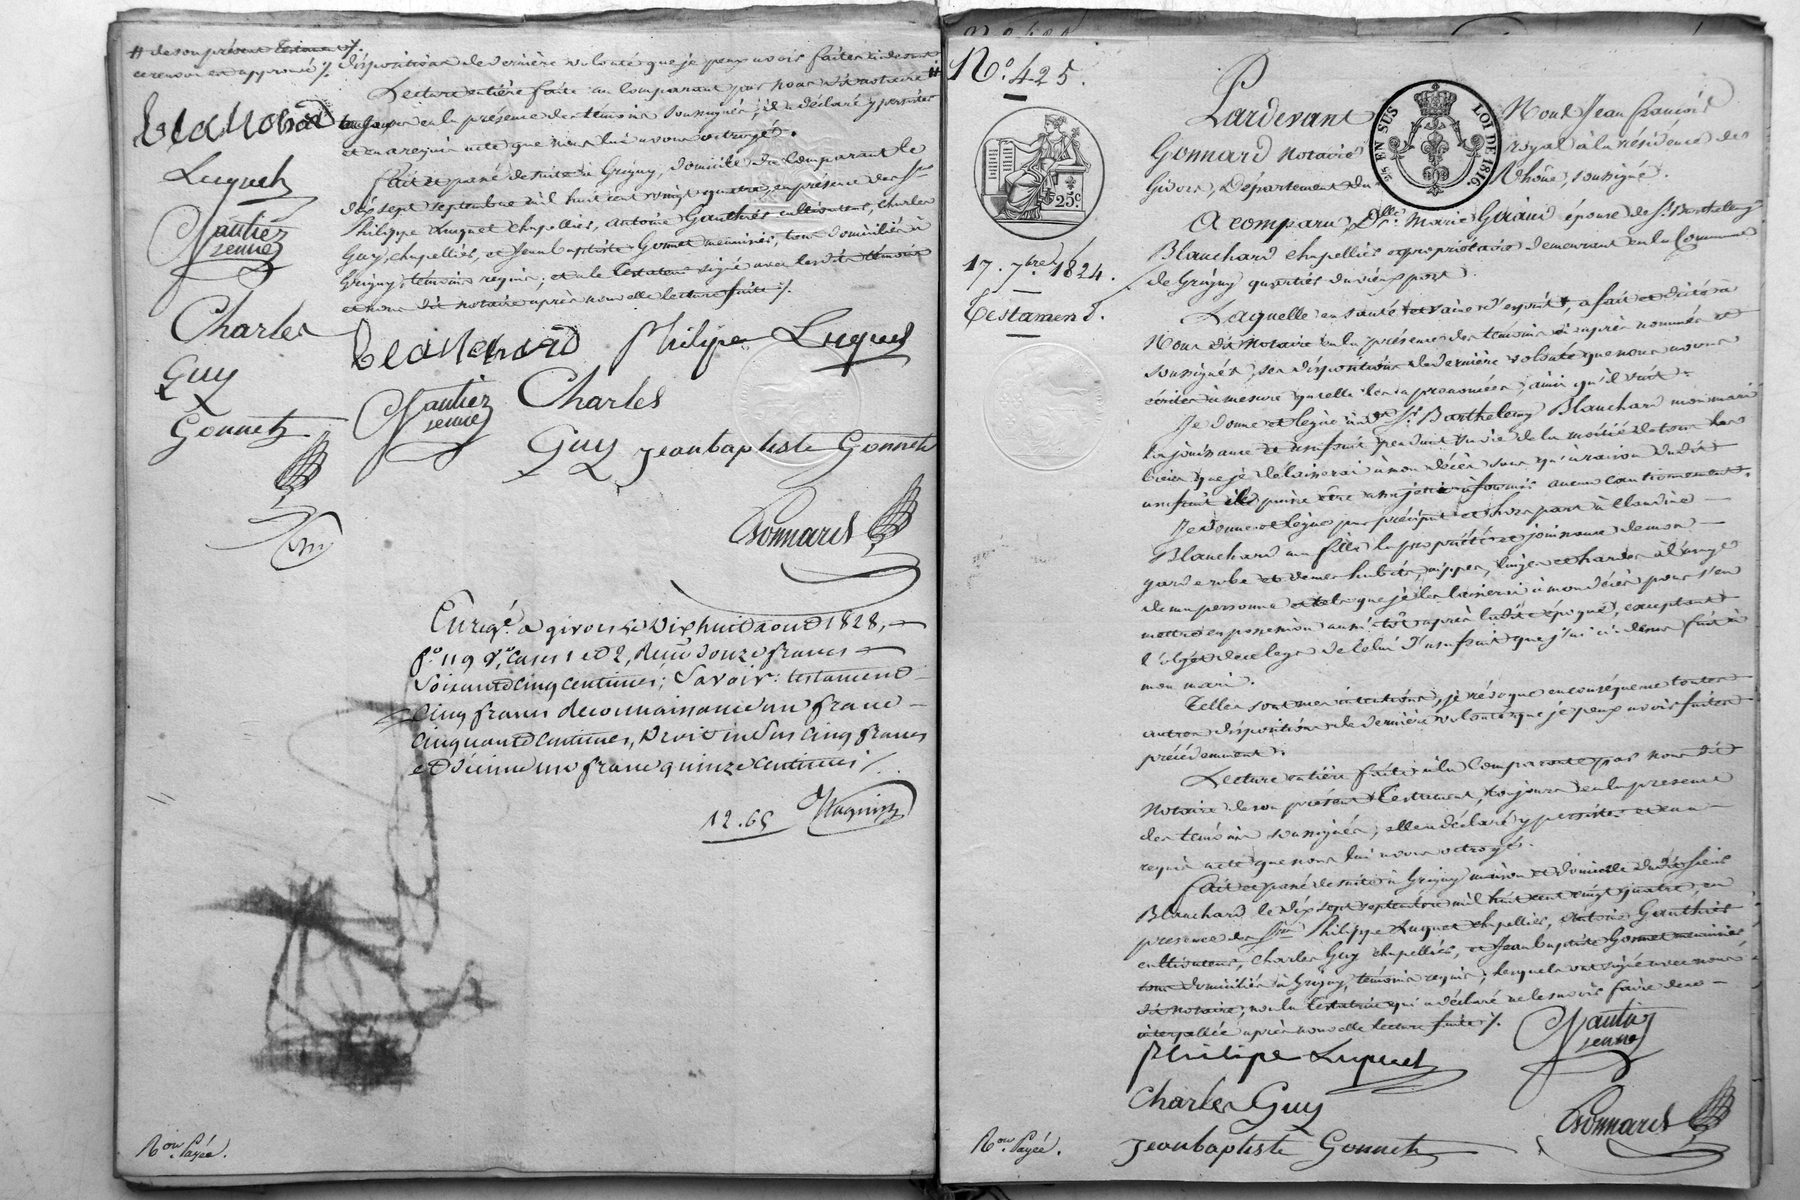 # de son présent testament /.
ce renvoi est approuvé /.
Blanchard
Luquet
Gautier
jeune
Charles
Guy
Gonnet
dispositions de dernière volonté que je peux avoir faites
Lecture entière faite au comparant par nous dit notaire #
toujours en la présence des témoins soussignés, il a déclaré y persister
et en a requis acte que nous lui avons octroyé.
Fait et passé de suite à Grigny, domicile du comparant le
dix sept septembre mil huit cent vingt quatre, en présence des Srs
Philippe Luquet chapellier, Antoine Gauthier cultivateur, Charles
Guy, chapellier, et Jean baptiste Gonnet menuisier, tous domiciliés à
Grigny, témoins requis; et a le testateur signé avec lesdits témoins
et nous dit notaire après nouvelle lecture faite /.
Blanchard Philipe Luquet
Gautier
jeune
Charles
Guy jeanbaptiste Gonnet
Gonnard
Enregé. a givors le Dix huit aout 1828,
fo. 119 Vo. cases 1 et 2, Reçu douze francs
Soixante cinq centimes; Savoir: testament
Cinq francs deconnaissance un franc
cinquante centimes, Droit in sus cinq francs
et dixième un franc quinze centimes /
12.65
Ron. Payée.
No. 425.
25c
17. 7bre. 1824.
Testament.
EN SUS LOI DE 1816.
Pardevant Nous Jean François
Gonnard Notaire royal à la résidence de
Givors, Département du Rhône, soussigné.
A comparu, Dlle. Marie Giraud épouse de Sr. Barthelemy
Blanchard chapellier et propriétaire demeurant en la Commune
de Grigny quartier du vieux port.
Laquelle en santé et saine d'esprit, a fait et dicté à
Nous dit Notaire en la présence des témoins ci après nommés et
soussignés, ses dispositions de dernière volonté que nous avons
écrites à mesure qu'elle les a prononcées, ainsi qu'il suit.
Je donne et lègue au dit Sr. Barthelemy Blanchard mon mari
la jouissance et usufruit pendant sa vie de la moitié de tous les
biens que je délaisserai à mon décès sans qu'à raison du dit
usufruit il puisse être assujetti à fournir aucun cautionnement.
Je donne et lègue par préciput et hors part à Claudine
Blanchard ma fille la propriété et jouissance de mon
garde robe et de mes habits, nippes, linges et hardes à l'usage
de ma personne et tels que je les laisserai à mon décès pour s'en
mettre en possession aussi-tôt après ladite époque, exceptant
l'objet de ce legs de celui d'usufruit que j'ai ci-dessus fait à
mon mari.
Telles sont mes intentions, je révoque en conséquence toutes
autres dispositions de dernière volonté que je peux avoir faites
précédemment.
Lecture entière faite à la comparante par nous dit
Notaire de son présent Testament, toujours en la présence
des témoins soussignés; elle a déclaré y persister et en a
requis acte que nous lui avons octroyé.
Fait et passé de suite à Grigny maison et domicile du dit sieur
Blanchard le dix sept septembre mil huit cent vingt quatre, en
présence des Srs. Philippe Luquet chapellier, Antoine Gauthier
cultivateur, Charles Guy chapellier, et Jean baptiste Gonnet menuisier
tous domiciliés à Grigny, témoins requis, lesquels ont signé avec nous
dit notaire, non la testatrice qui a déclaré ne le savoir faire de ce
interpellée après nouvelle lecture faite /.
Gautier
jeune
Philipe Luquet
Charles Guy
Gonnard
jeanbaptiste Gonnet
Ron. Payée.